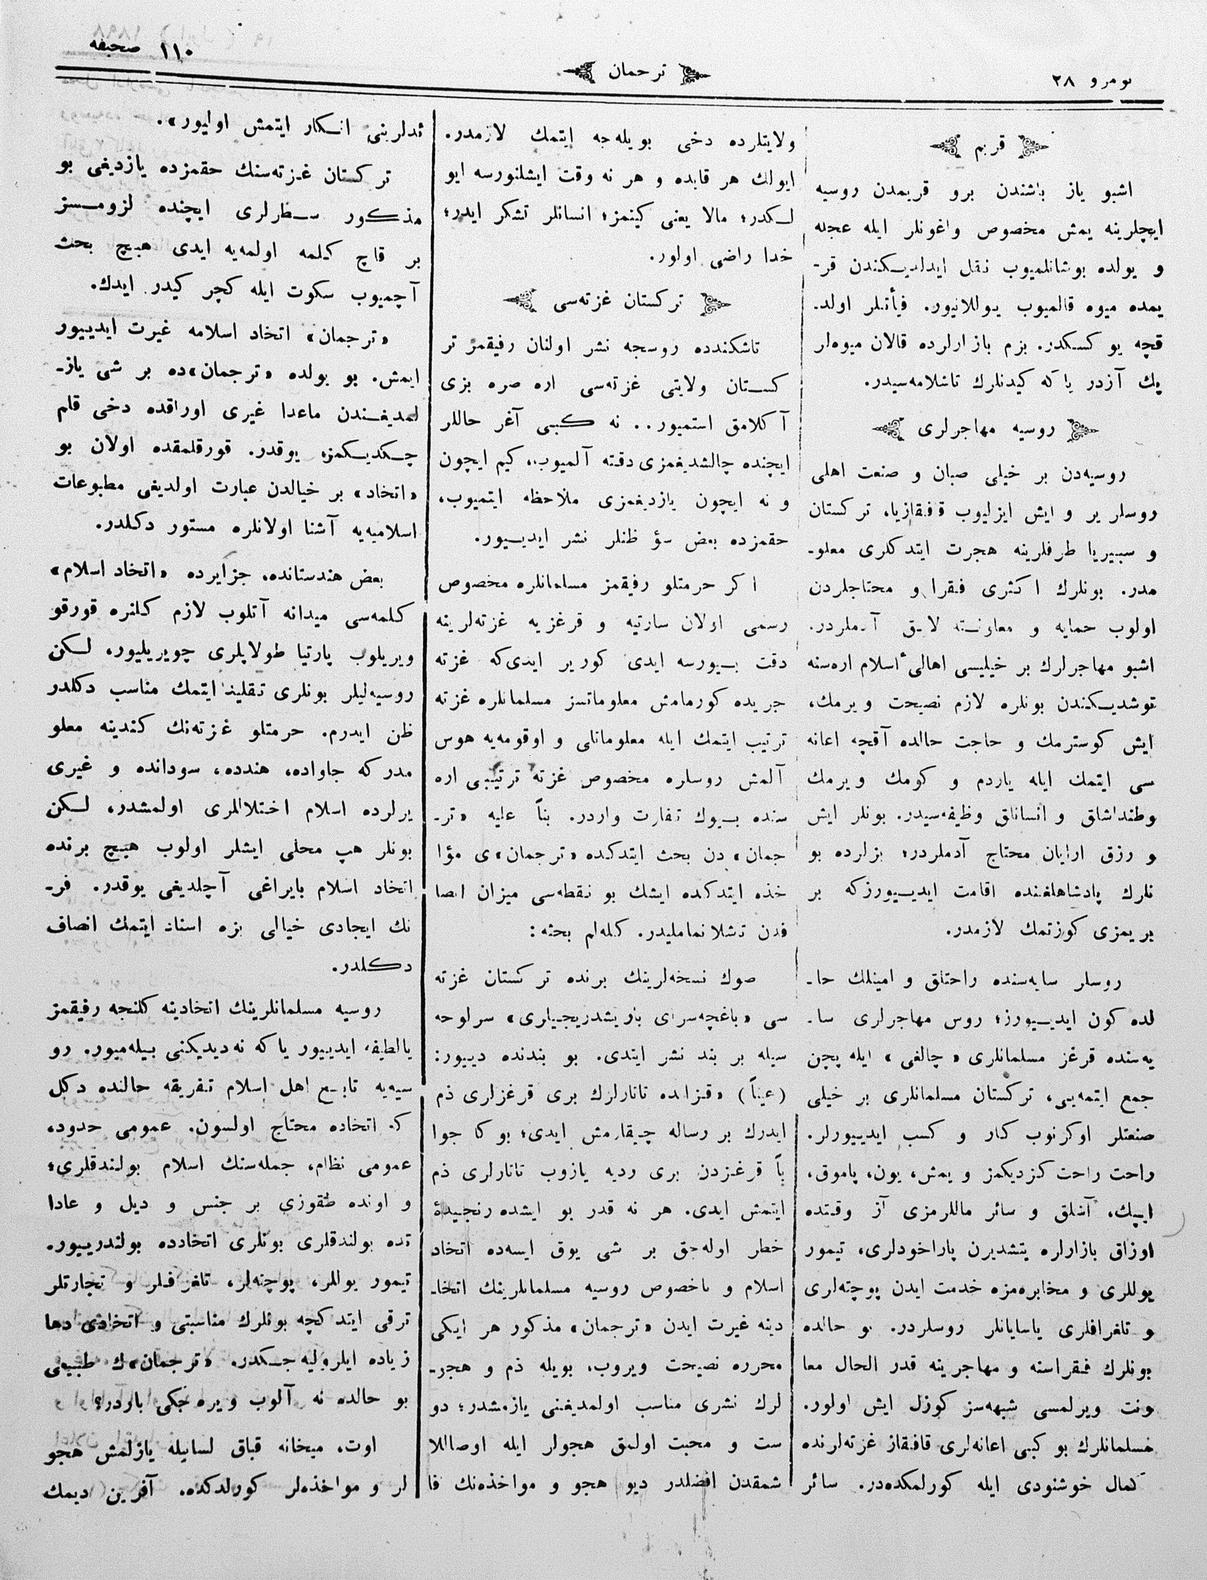 نومرو ٢٨
ترجمان
١١٠ صحیفه
قریم
اشبو یاز باشندن برو قریمدن روسیه
ایچلرینه یمش مخصوص واغونلر ایله عجله
و یولده بوشانلمیوب نقل ایدلدیـكندن قر۔
یمده میوه قالمیوب یـوللانیور. فیأتلر اولد۔
قچه یوكسكدر. بزم بازارلرده قالان میوه‌لر
پك آزدر یاكه كیدنلرك تاشلامه‌سیدر.
روسیه مهاجرلری
روسیه‌دن بر خیلی صبان و صنعت اهلی
روسلر یر و ایش ایزلیوب قفقازیا، تركستان
و سیبریا طرفلرینه هجرت ایتدكلری معلو۔
مدر. بونلرك اكثری فقرا و محتاجلردن
اولوب حمایه و معاونـته لایق آدملردر.
اشبو مهاجرلرك بر خیلیسی اهالیٔ اسلام اره‌سنه
توشدیـكندن بونلره لازم نصیحت ویرمك،
ایش كوسترمك و حاجت حالده آقچه اعانه
سی ایتمك ایله یاردم و كومك ویرمك
وطنداشلق و انسانلق وظیفه‌سیدر. بونلر ایش
و رزق ارایان محتاج آدملردر؛ بزلرده بو
نلرك پادشاهلغنده اقامت ایدیـیورزكه بر
بریمزی كوزتمك لازمدر.
روسلر سایه‌سنده راحتلق و امینلك حا۔
لده كون ایدیـیورز؛ روس مهاجرلری سا۔
یه‌سنده قرغز مسلمانلری «چالغی» ایله پچن
جمع ایتمه‌یی، تركستان مسلمانلری بر خیلی
صنعتلر اوكرنوب كار و كسب ایدییورلر.
راحت راحت كزدیكمز و یمش، یون، پاموق،
ایپك، آشلق و سائر ماللرمزی آز وقتده
اوزاق بازارلره یتشدیرن پاراخودلری، تیمور
یوللری و مخابره‌مزه خدمت ایدن پوچته‌لری
و تلغرافلری یاسایانلر روسلردر. بو حالده
بونلرك فقراسنه و مهاجرینه قدر الحال معا
ونت ویرلمسی شبهه‌سز كوزل ایش اولور.
مسلمانلرك بو كبی اعانه‌لری قافقاز غزته‌لرنده
كمال خوشنودی ایله كورلمكده‌در. سائر
ولایتلرده دخی بویله‌جه ایتمك لازمدر.
ایولك هر قابده و هر نه وقت ایشلنورسه ایو
لـكدر؛ مالا یعنی كیتمز؛ انسانلر تشكر ایدر؛
خدا راضی اولور.
تركستان غزته‌سی
تاشكندده روسجه نشر اولنان رفیقمز تر
كسـتان ولایتی غزته‌سی اره صره بزی
آكلامق استمیور.. نه كـبی آغر حاللر
ایچنده چالشدیغمزی دقته آلمیوب، كیم ایچون
و نه ایچون یازدیغمزی ملاحظه ایتمیوب،
حقمزده بعض سؤ ظنلر نشر ایدیـیور.
اكر حرمتلو رفیقمز مسلمانلره مخصوص
رسمی اولان سارتیه و قرغزیه غزته‌لرینه
دقت بـیورسه ایدی كوریر ایدی‌كه غزته
جریده كورمامش معلوماتسز مسلمانلره غزته
ترتیب ایتمك ایله معلوماتلی و اوقومه‌یه هوس
آلمش روسلره مخصوص غزته ترتیبی اره
سنده بـیوك تفاوت واردر. بنأ علیه «تر۔
جمان»دن بحث ایتدكده «ترجمان»ی مؤا
خذه ایتدكده ایشك بو نقطه‌سی میزان انصا
فدن تشلانمامالیدر. كله‌لم بحثه:
صوك نسخه‌لرینك برنده تركستان غزته
سی «باغچه‌سرای باریشدریجیلری» سرلوحه
سیله بر بند نشر ایتدی. بو بندنده دییور:
(عیناً) «قزانده تاتارلرك بری قرغزلری ذم
ایدرك بر رساله چیقارمش ایدی؛ بوكا جوا
باً قرغزدن بری ردیه یازوب تاتارلری ذم
ایتمش ایدی. هر نه قدر بو ایشده رنجیدۀ
خطر اوله‌جق بر شی یوق ایسه‌ده اتحاد
اسلام و باخصوص روسیه مسلمانلرینك اتحا۔
دینه غیرت ایدن «ترجمان» مذكور هر ایكی
محرره نصیحت ویروب، بویله ذم و هجو۔
لرك نشری مناسب اولمدیغنی یازمشدر؛ دو
ست و محبت اولمق هجولر ایله اوصاللا
شمقدن افضلدر دیو هجو و مواخذه‌نك فا
ئدلرینی انـكار ایتمش اولیور».
تركستان غزته‌سنك حقمزده یازدیغی بو
مذكور سـطرلری ایچنده لزومـسز
بر قاچ كلمه اولمه‌یه ایدی هیچ بحث
آچمیوب سكوت ایله كچر كیدر ایدك.
«ترجمان» اتحاد اسلامه غیرت ایدییور
ایمش. بو یولده «ترجمان»ده بر شی یاز۔
لمدیغـندن ماعدا غیری اوراقده دخی قلم
چـكدیـكمز یوقدر. قورقلمقده اولان بو
«اتحاد» بر خیالدن عبارت اولدیغی مطبوعات
اسلامیه‌یه آشنا اولانلره مستور دكلدر.
بعض هندستانده، جزایرده «اتحاد اسلام»
كلمه‌سی میدانه آتلوب لازم كلنره قورقو
ویریلوب پارتیا طولاپلری چویریلیور، لـكن
روسیه‌لیلر بونلری تقلید ایتمك مناسب دكلدر
ظن ایدرم. حرمتلو غزته‌نك كندینه معلو
مدركه جاواده، هندده، سودانده و غیری
یرلرده اسلام اختلاللری اولمشدر، لـكن
بونلر هپ محلی ایشلر اولوب هیـچ برنده
اتحاد اسلام بایراغی آچلدیغی یوقدر. فر۔
نك ایجادی خیالی بزه اسناد ایتمك انصاف
دكلدر.
روسیه مسلمانلرینك اتحادینه كلنجه رفیقمز
یالطیفه ایدییور یاكه نه‌دیدیكنی بیله‌میور. رو
سیه‌یه تابـع اهل اسلام تفریقه حالنده دكل
كه اتحاده محتاج اولسون. عمومی حدود،
عمومی نظام، جمله‌سنك اسلام بولندقلری؛
و اونده طقوزی بر جنس و دیل و عادا
تده بولندقلری بونلری اتحادده بولندرییور.
تیمور یوللر، پوچته‌لر، تلغرافلر و تجارتلر
ترقی ایتدكچه بونلرك مناسبتی و اتحادی دها
زیاده ایلرولیه‌جـكدر. «ترجمان»ك طبیعی
بو حالده نه آلوب ویره‌جكی باردر؟
اوت، میخانه قباق لسانیله یازلمش هجو
لر و مواخذه‌لر كورلدكده، آفرین دیمك